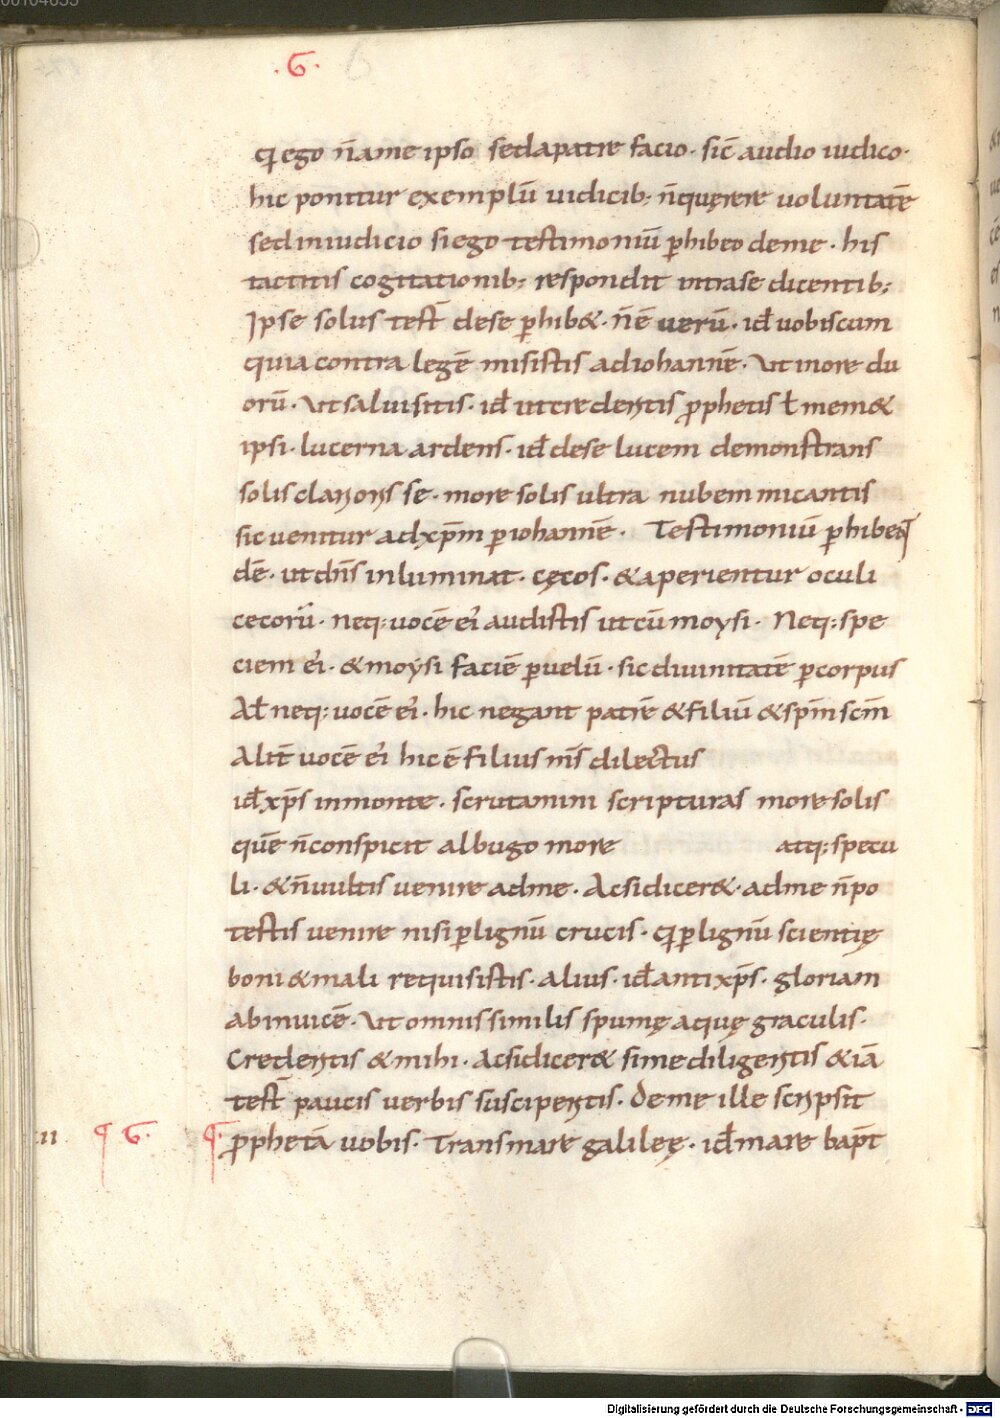 .6. 6
qͥ ego n̄ ame ipso sed a patre facio · sic̄ audio iudico ·
hic ponitur exemplū iudicib; n̄ quęrere voluntatē
sed in iudicio si ego testimoniū ꝑhibeo de me · his
tacitis cogitationib; respondit intra se dicentib;
Ipse solus test̄ de se ꝑhib& · n̄ē uerū · id̄ uobiscum
quia contra legē misistis ad iohannē · Ut more du
orū · Ut salui sitis · id̄ ut credentis ꝓphetis t̄ mem&
ipsi · lucerna ardens · id̄ de se lucem demonstrans
solis clarioris se · more solis ultra nubem micantis
sic uenitur ad xp̄m ꝑ iohannē · Testimoniū ꝑhibent
de · ut dn̄s inluminat · cęcos · & aperientur oculi
cecorū · neq: uocē ei audistis ut cū moysi · Neq: spe
ciem ei · & moysi faciē ꝑ uelū · sic diuinitatē ꝑ corpus
At̄ neq: uocē ei · hic negant patrē & filiū & sp̄m scm̄
Alit̄ uocē ei hic ē filius m̄s dilectus
id̄ xp̄s in monte · scrutamini scripturas more solis
quē n̄ conspicit albugo more atq: specu
li · & n̄ uultis uenire ad me · Ac si dicer& · ad me n̄ po
testis uenire nisi ꝑ lignū crucis · qͥ ꝑ lignū scientię
boni & mali requisistis · alius · id̄ antixp̄s · gloriam
ab inuicē · Ut omnis similis spumę aquę graculis ·
Credentis & mihi · Ac si dicer& si me diligentis & iā
test̄ paucis uerbis suscipentis · De me ille scripsit
11 ¶ 6 · ¶ · ꝓphetā uobis · Trans mare galileę · id̄ mare bapt̄
Digitalisierung gefördert durch die Deutsche Forschungsgemeinschaft - DFG